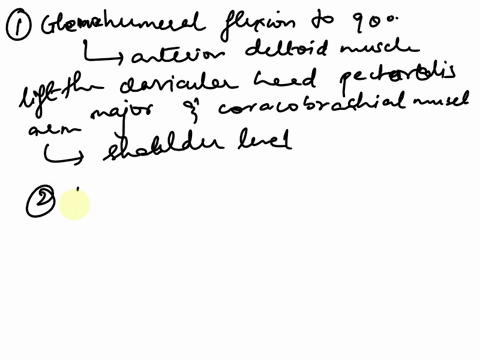 ① Glenohumeral flexion to 90°.
↳ anterior deltoid muscle
lift the clavicular head pectoralis
arm major & coracobrachial muscl
↳ shoulder level
②